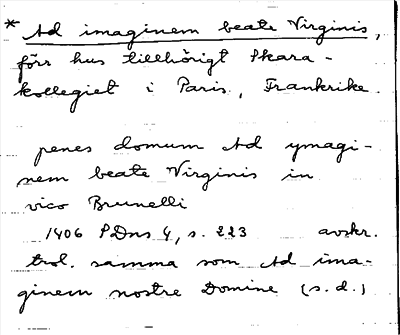 * Ad imaginem beate Virginis,
förr hus tillhörigt Skara-
kollegiet i Paris, Frankrike.
penes domum Ad ymagi-
nem beate Virginis in
vico Brunelli
1406 PDns 4, s. 223 avskr.
trol. samma som Ad ima-
ginem nostre Domine (s.d.)